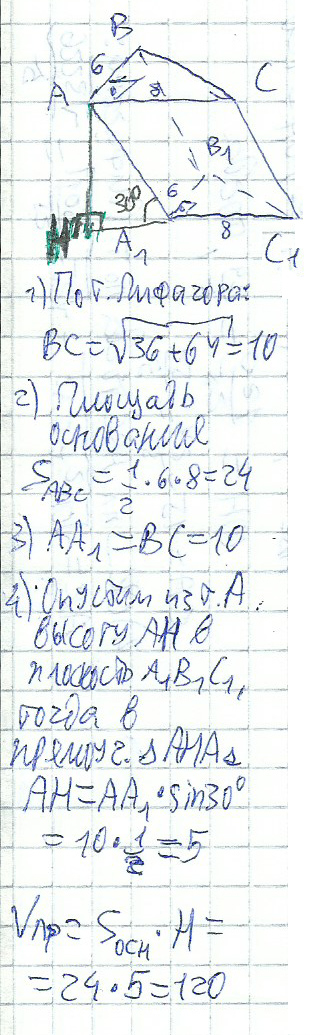 B
6
A
8
C
B₁
30°
6
H
A₁
8
C₁
1) По т. Пифагора:
BC = √36+64 = 10
2) Площадь
основания
S_ABC = 1/2 · 6 · 8 = 24
3) AA₁ = BC = 10
4) Опустим из т. A
высоту AH в
плоскость A₁B₁C₁,
тогда в
прямоуг. △AHA₁
AH = AA₁ · sin30°
= 10 · 1/2 = 5
Vпр = Sосн · H =
= 24 · 5 = 120